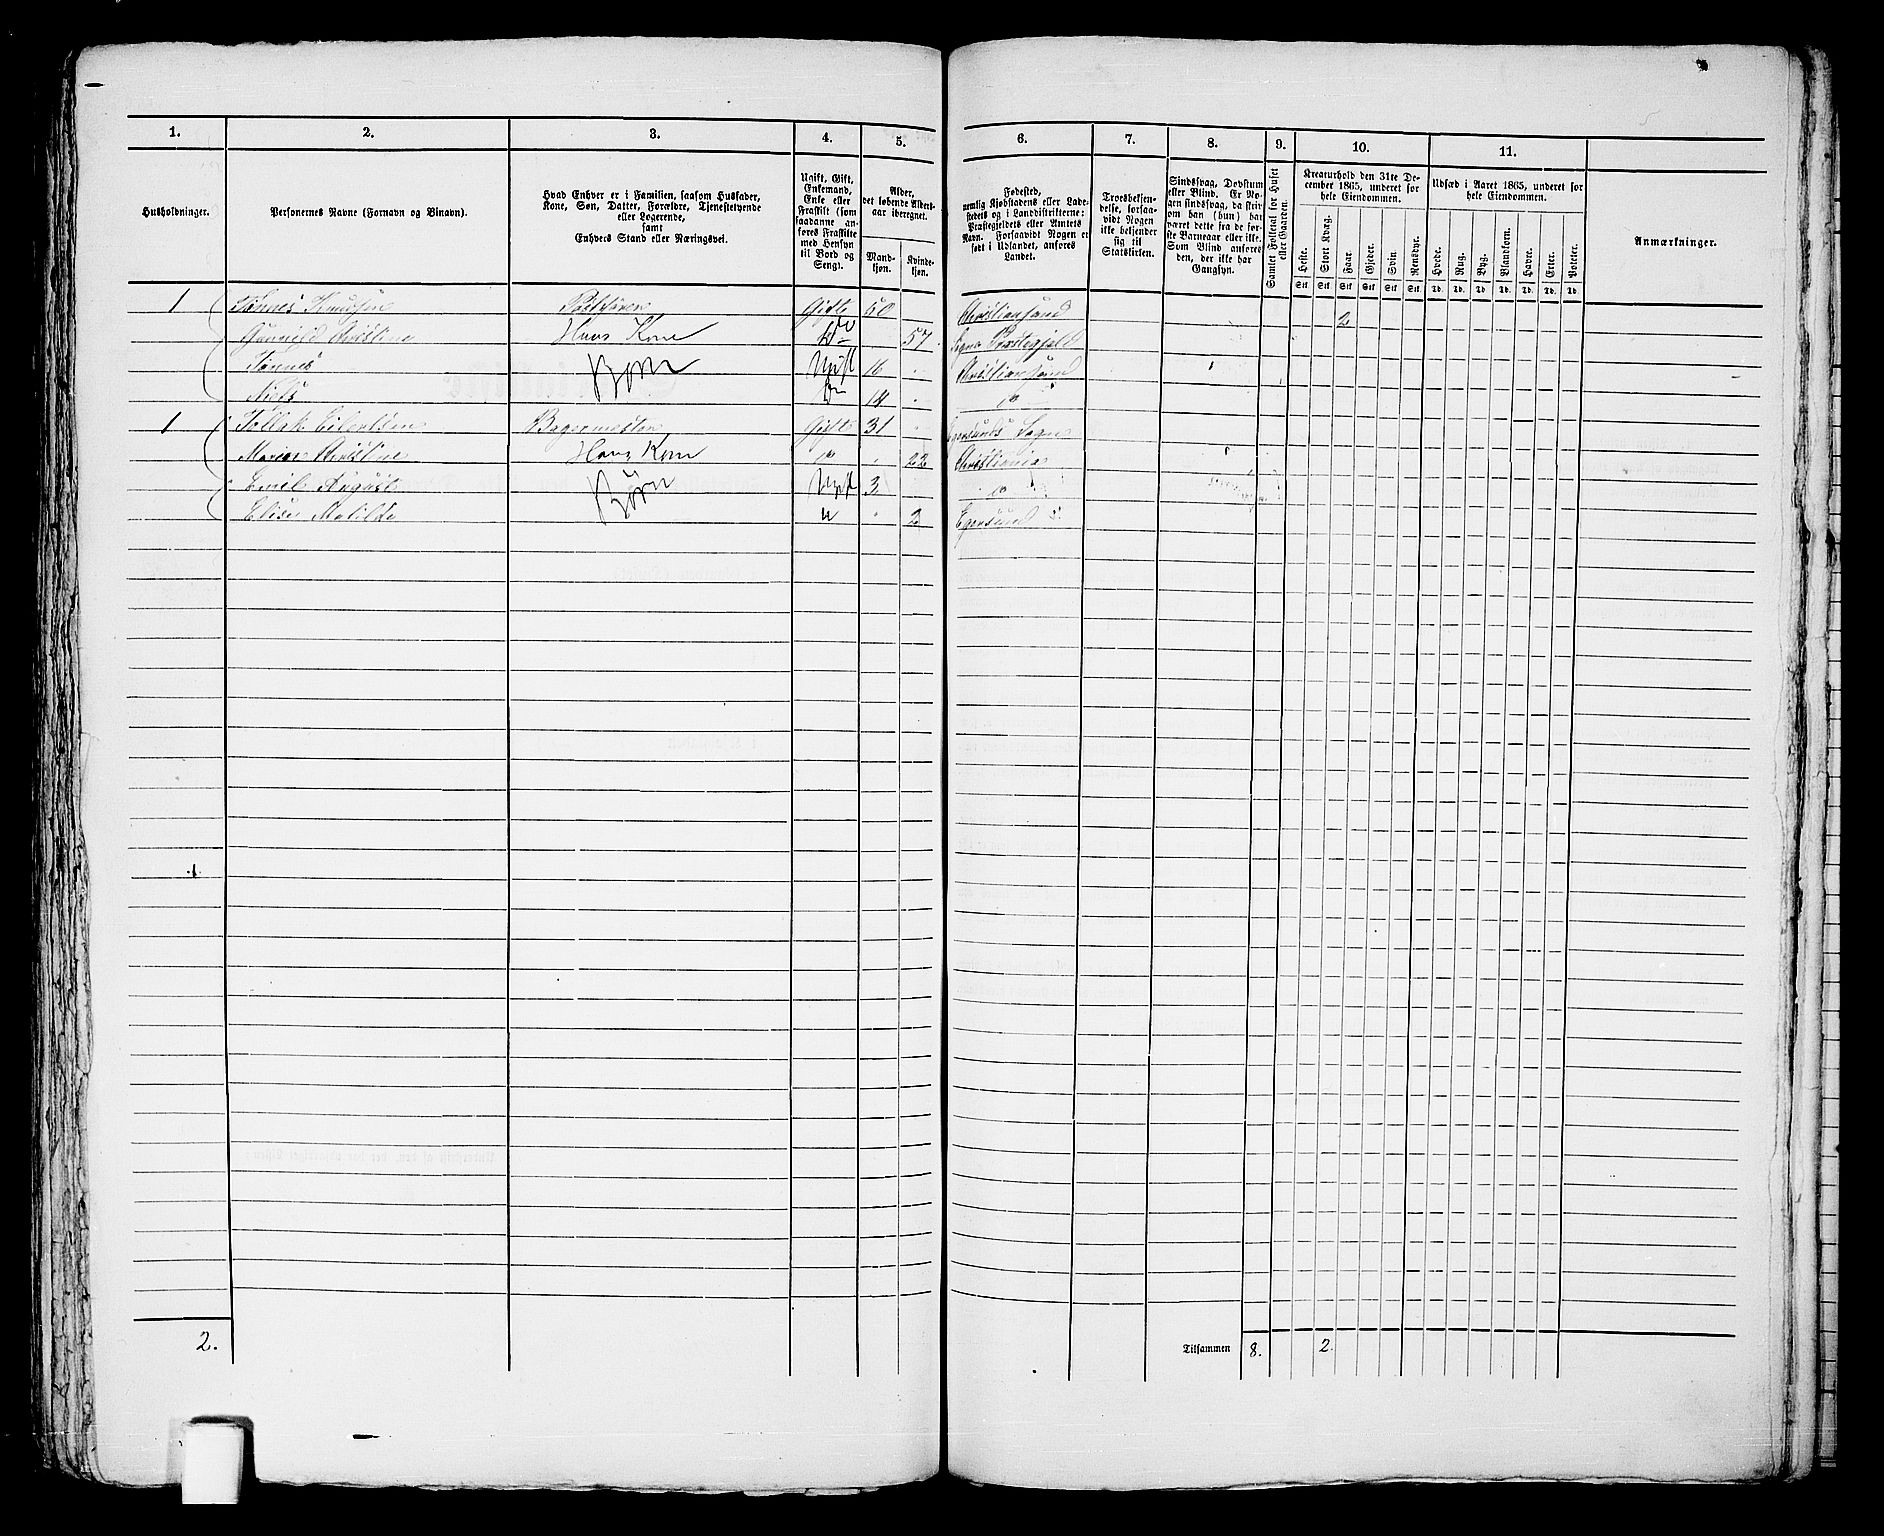 1. 2. 3. 4. 5. 6. 7. 8. 9. 10. 11.
Husholdninger.
Personernes Navne (Fornavn og Binavn).
Hvad Enhver er i Familien, saasom Husfader,
Kone, Søn, Datter, Forældre, Tjenestetyende
eller Logerende,
samt
Enhvers Stand eller Næringsvei.
Ugift, Gift,
Enkemand,
Enke eller
Fraskilt (som
saadanne an-
føres Fraskilte
med Hensyn
til Bord og
Seng).
Alder,
det løbende Alders-
aar iberegnet.
Mand-
kjøn.
Kvinde-
kjøn.
Fødested,
nemlig Kjøbstadens eller Lade-
stedets og i Landdistrikterne:
Præstegjeldets eller Amtets
Navn. Forsaavidt Nogen er
født i Udlandet, anføres
Landet.
Troesbekjen-
delse, forsaa-
vidt Nogen
ikke bekjender
sig til
Statskirken.
Sindssvag, Døvstum
eller Blind. Er No-
gen sindssvag, da skri-
ves om han (hun) har
været dette fra de før-
ste Barneaar eller ikke.
Som Blind anføres
den, der ikke har
Gangsyn.
Samlet Folketal for Huset
eller Gaarden.
Kreaturhold den 31te De-
cember 1865, underet for
hele Eiendommen.
Heste. Stort Kvæg. Faar. Gjeder. Svin. Rensdyr.
Stk Stk Stk Stk Stk Stk
Udsæd i Aaret 1865, underet for
hele Eiendommen.
Hvede. Rug. Byg. Blandkorn. Havre. Erter. Poteter.
Td. Td. Td. Td. Td. Td. Td.
Anmærkninger.
1 Tønnes Knudsen Gift 50 Christianssand 2
Gunnild Christine Hans Kone Do 57 Sogne Præstegjeld
Tønnes Børn Ugift 16 Christianssand
Niels Do 14 Do
1 Tollak Eilertsen Bagermester Gift 31 Egersunds Sogn
Maren Christine Hans Kone Do 22 Christiania
Emil August Børn Ugift 3 Do
Elise Matilde " 2 Egersund
2. Tilsammen 8. 2.